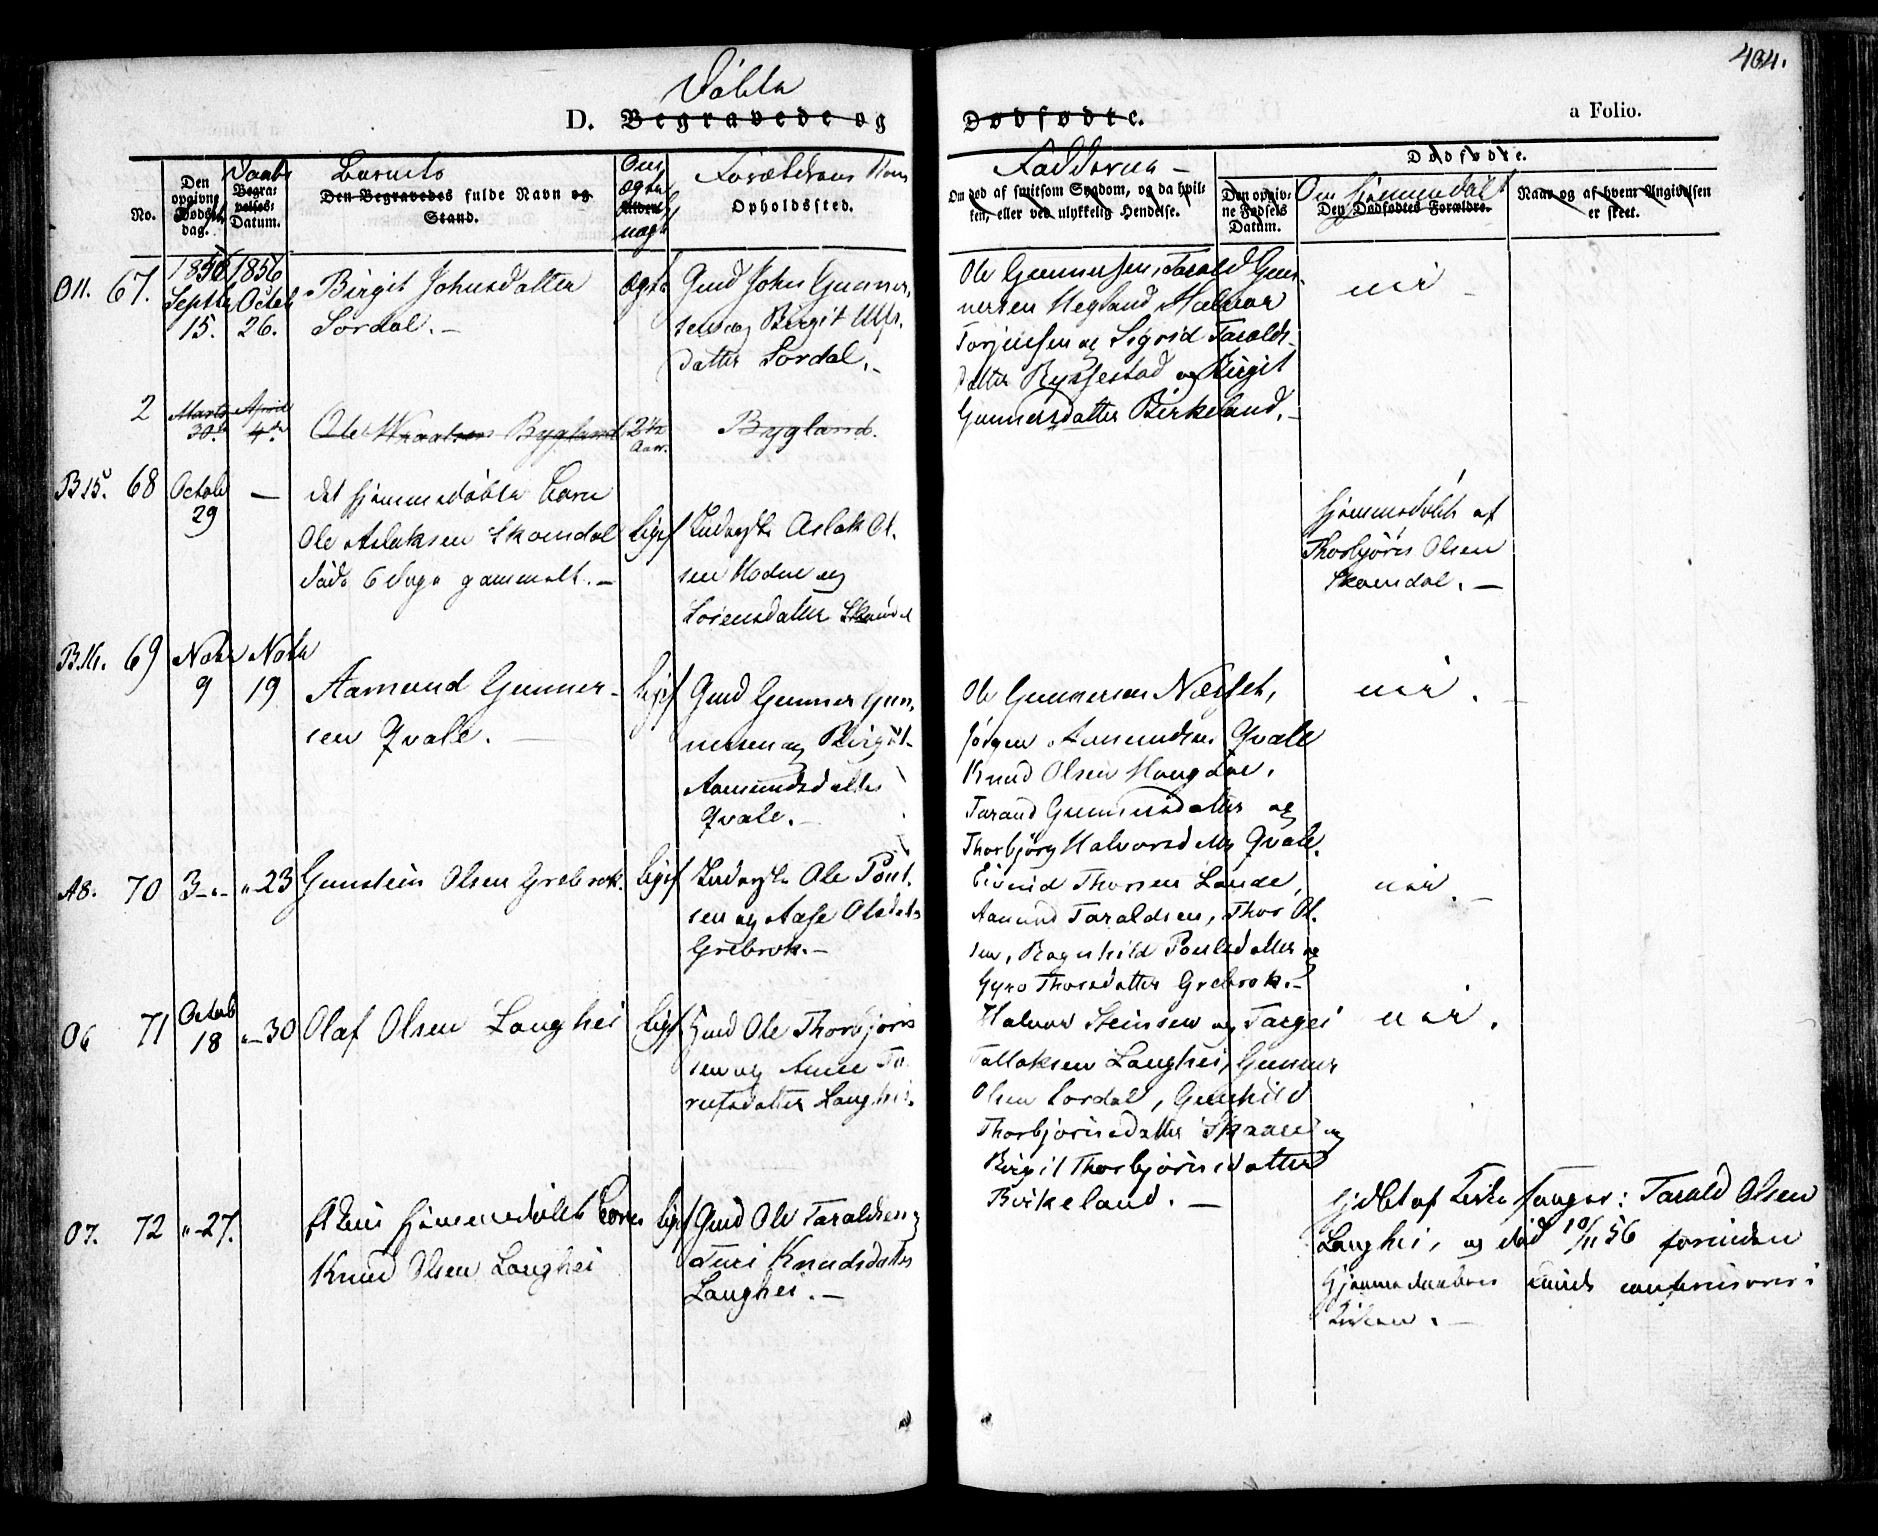 404.
Döbte
D. Begravede og
Dødfødte.
a Folio.
No.
Den
opgivne
Døds-
dag.
Daabs
Begra-
velses-
Datum.
Barnets
Den Begravedes fulde Navn og
Stand.
Om
ægte
Alder
uægte
Forældrenes Navn
Opholdssted.
Fadderne
Om død af smitsom Sygdom, og da hvil-
ken, eller ved ulykkelig Hendelse.
Dødfødte.
Den opgiv-
ne Fødsels
Datum.
Om hjemmedøbt
Den Dødfødtes Forældre.
Navn og af hvem Angivelsen
er skeet.
O11. 67.
1856
Septbr
15.
1856
Octob
26.
Birgit Johnsdatter
Sordal.
ægte
Gmd John Gunner-
sen og Birgit Ulfs-
datter Sordal.
Ole Gunnersen, Tarald Gun-
nersen Hegland, Halvor
Torjussen og Sigrid Taralds-
datter Rygsestad og Birgit
Gunnersdatter Birkeland.
nei
2
Marts
30.
April
4de
Ole Knudsen Bygland
2 1/2
Aar.
Bygland.
B 15. 68
Octob
29
det hjemmedøbte Barn
Ole Aslaksen Skomdal
døde 6 Dage gammelt.
ligesaa
Inderste Aslak Ol-
sen Modne og
Sörensdatter
hjemmedøbt af
Thorbjörn Olsen
B 16. 69
Novbr
9
Novbr
19
Aamund Gunner-
sen Qvale.
Gmd Gunner Gun-
nersen og Birgit
Aamundsdatter
Qvale.
Ole Gunnersen Næset,
Jörgen Aamundsen Qvale
Knud Olsen Haugdal,
Tarand Gunnersdatter og
Thorbjörg Halvorsdatter Qvale.
nei.
A8. 70
3 -"-
"-23
Gunstein Olsen Grebrok.
Inderste Ole Poul-
sen og Aase Olsdatter
Grebrok.
Eivind Thorsen Lande,
Aamund Taraldsen, Thor Ol-
sen, Ragnhild Poulsdatter og
Gyro Thorsdatter Grebrok.
nei.
O6 71
Octob
18
"-30
Olaf Olsen Langhei
Gmd Ole Thorbjörn
sen og Anne
Langhei.
Halvor Steinsen og Targei
Tallaksen Langhei, Gunner
Olsen Sordal, Gunhild
Thorbjörnsdatter Skaarei og
Birgit Thorbjörnsdatter
Birkeland.
nei.
O7. 72
"-27.
hjemmedøbt Barn
Knud Olsen Langhei
Gmd Ole Taraldsen og
Knudsdatter
Langhei.
af Kirkesanger: Tarald Olsen
Langhei, og død 10/11 56 forinden
Hjemmedaaben kunde confirmeres i
Kirken.